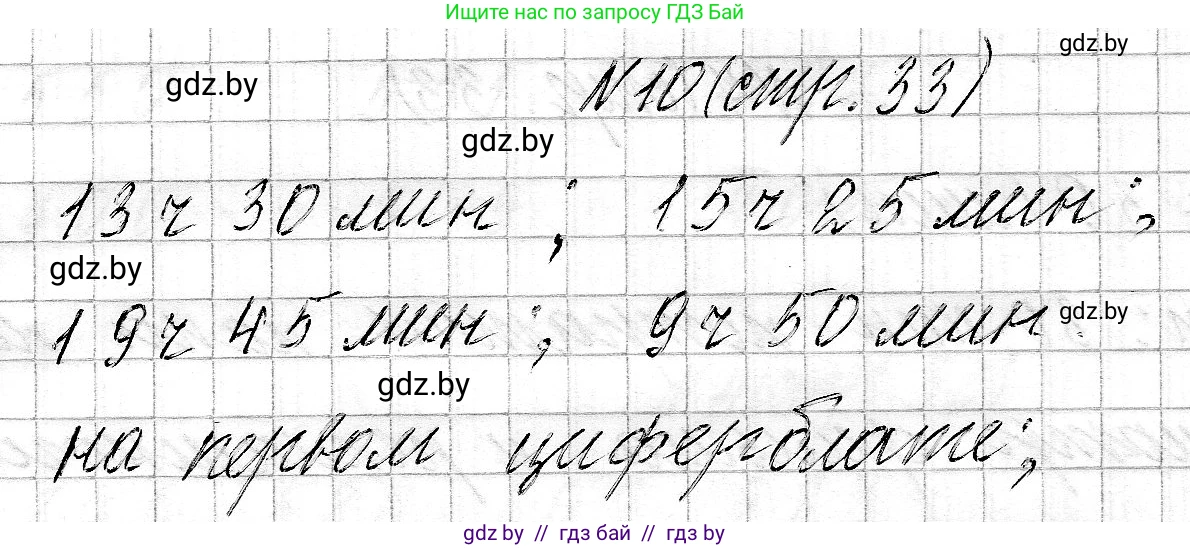 Ищите нас по запросу ГДЗ Бай
gdz.by
gdz.by
N10 (стр. 33)
gdz.by
13 ч 30 мин ; 15 ч 25 мин ;
gdz.by
19 ч 45 мин ; 9 ч 50 мин
gdz.by
gdz.by
на первом циферблате ;
gdz by // гдз бай // гдз by